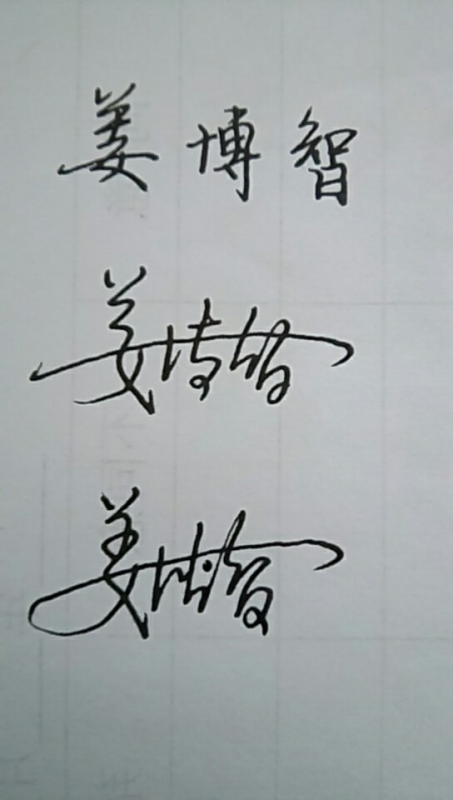 姜博智
姜博智
姜博智